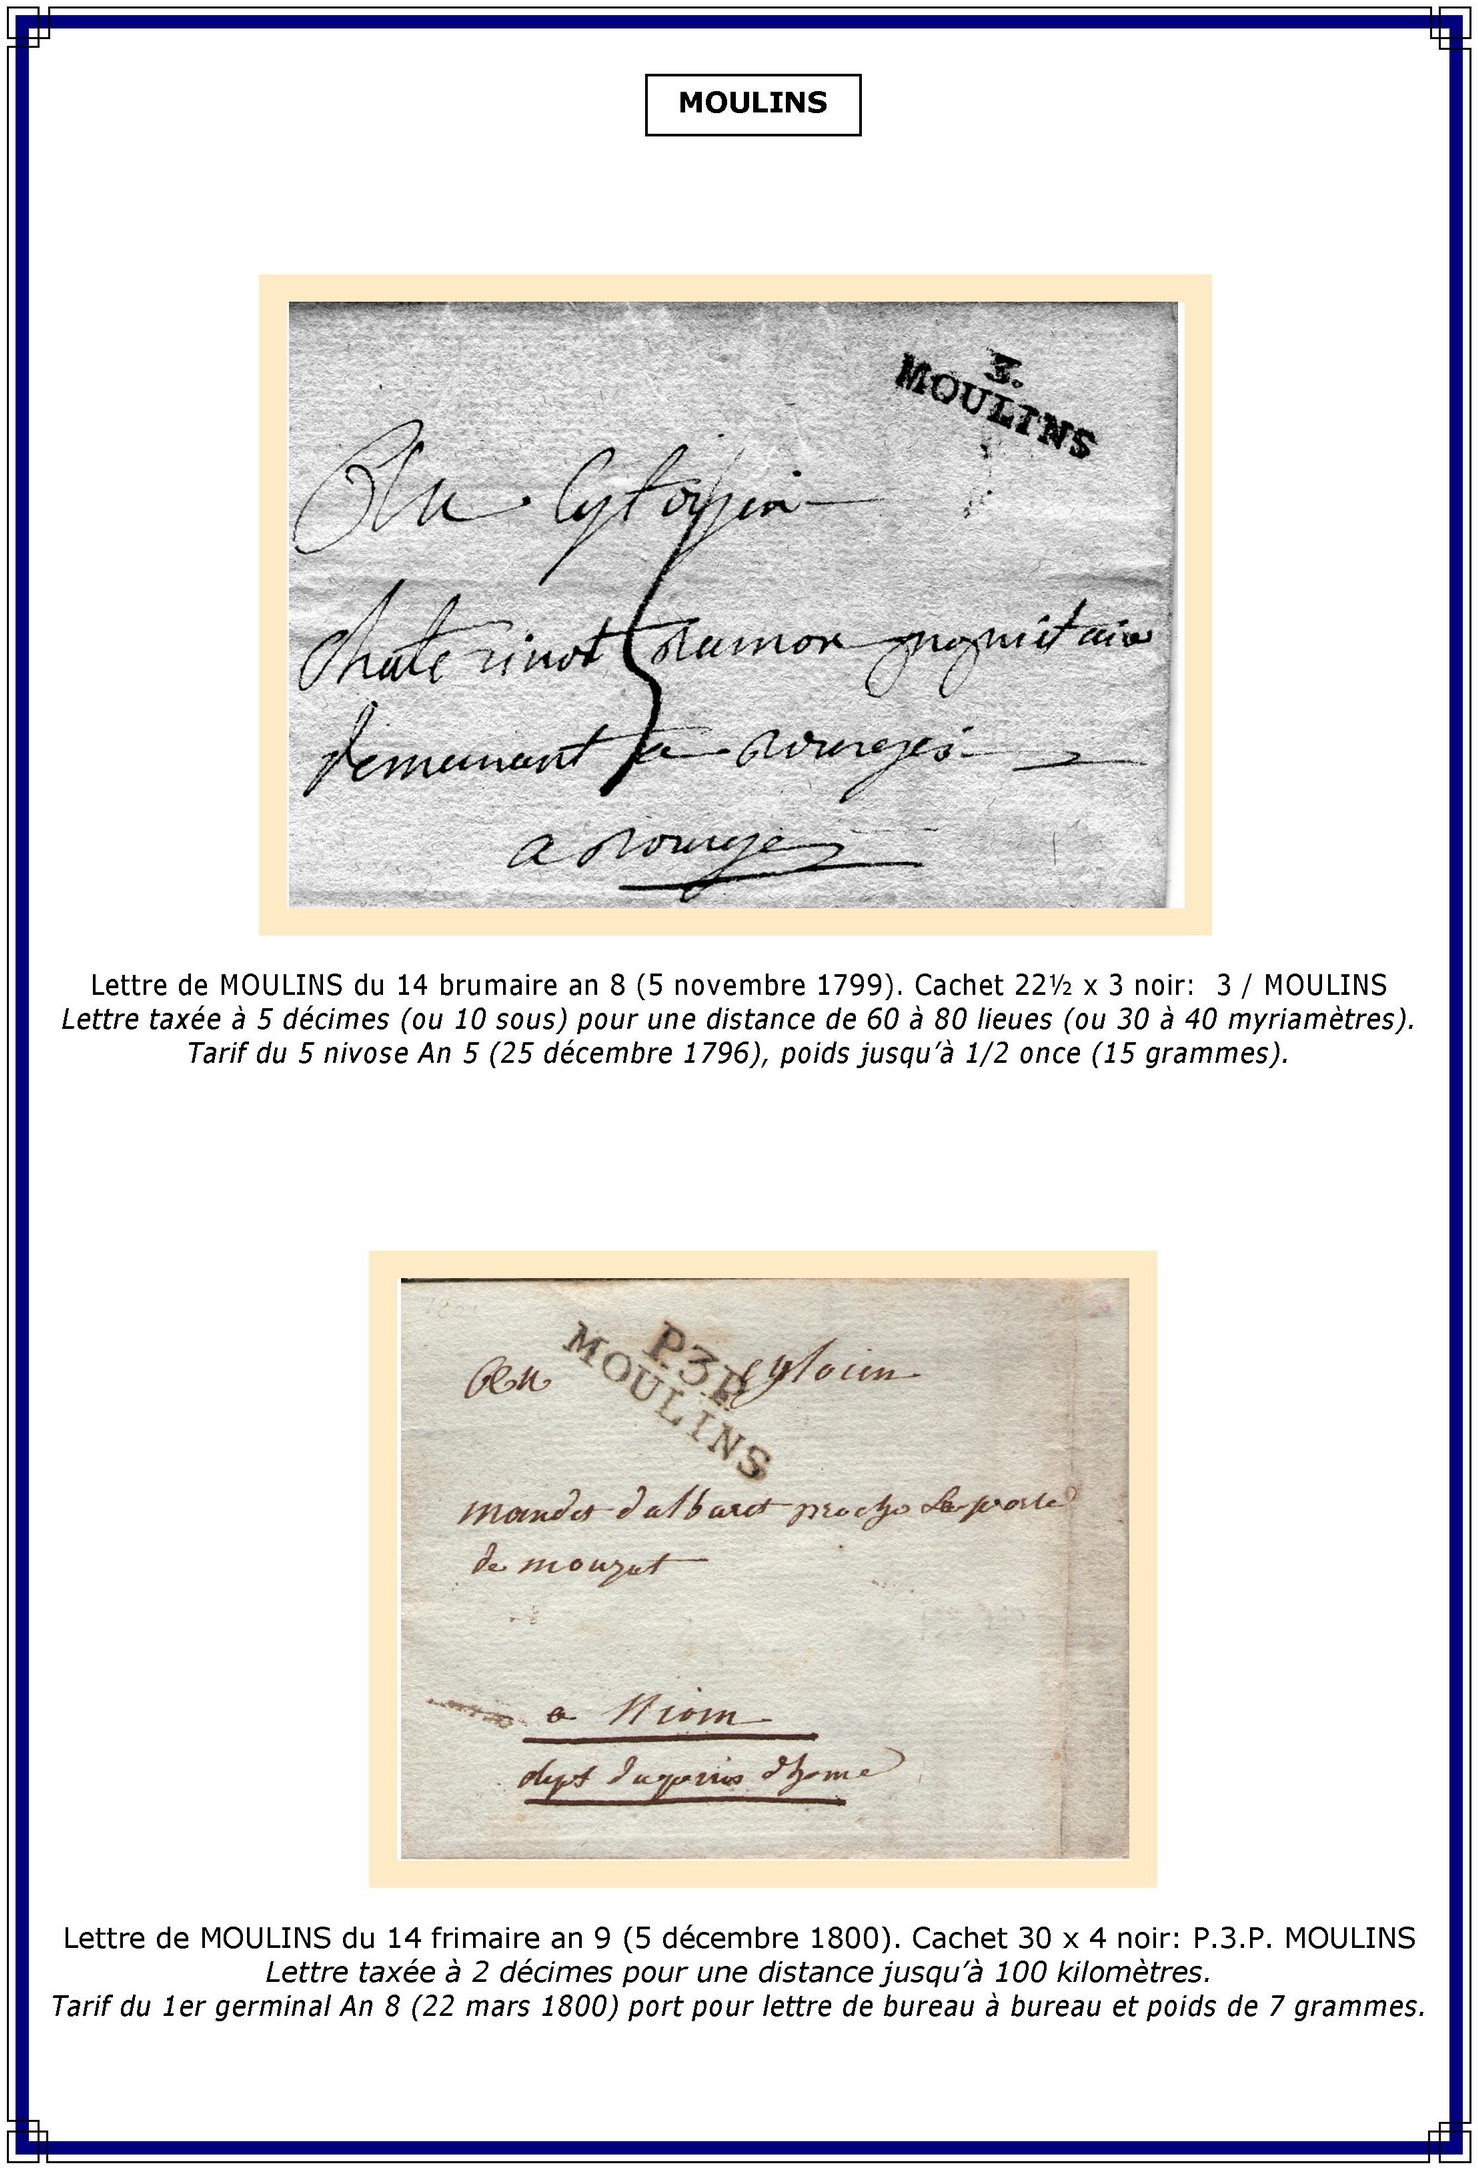 MOULINS
3.
MOULINS
Au Cytoyin
chaterinot ramon propriétaire
demeurant a Bourges
5
a Bourges
Lettre de MOULINS du 14 brumaire an 8 (5 novembre 1799). Cachet 22½ x 3 noir:  3 / MOULINS
Lettre taxée à 5 décimes (ou 10 sous) pour une distance de 60 à 80 lieues (ou 30 à 40 myriamètres).
Tarif du 5 nivose An 5 (25 décembre 1796), poids jusqu’à 1/2 once (15 grammes).
P.3.P.
MOULINS
Au Cytoien
mandet dalbaret proche La porte
de mouzat
a Riom
dept du
Lettre de MOULINS du 14 frimaire an 9 (5 décembre 1800). Cachet 30 x 4 noir: P.3.P. MOULINS
Lettre taxée à 2 décimes pour une distance jusqu’à 100 kilomètres.
Tarif du 1er germinal An 8 (22 mars 1800) port pour lettre de bureau à bureau et poids de 7 grammes.